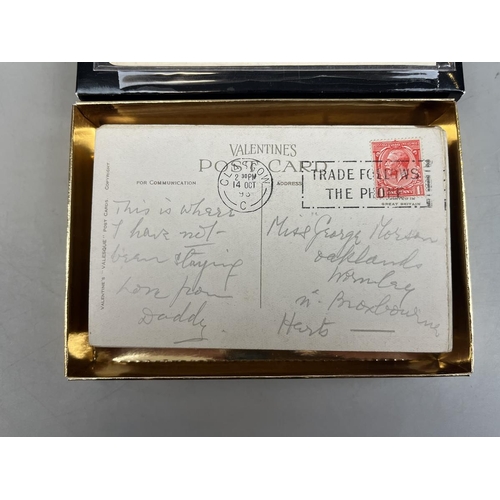 VALENTINES
POST CARD
FOR COMMUNICATION
ADDRESS
VALENTINE'S "VALESQUE" POST CARDS Copyright
GLASGOW
2 30PM
14 OCT
193
C
TRADE FOLLOWS
THE PHONE
GREAT BRITAIN
This is where
I have not
been staying
Love from
Daddy.
Miss George Morson
Oaklands
Wormley
Nr Broxbourne
Herts